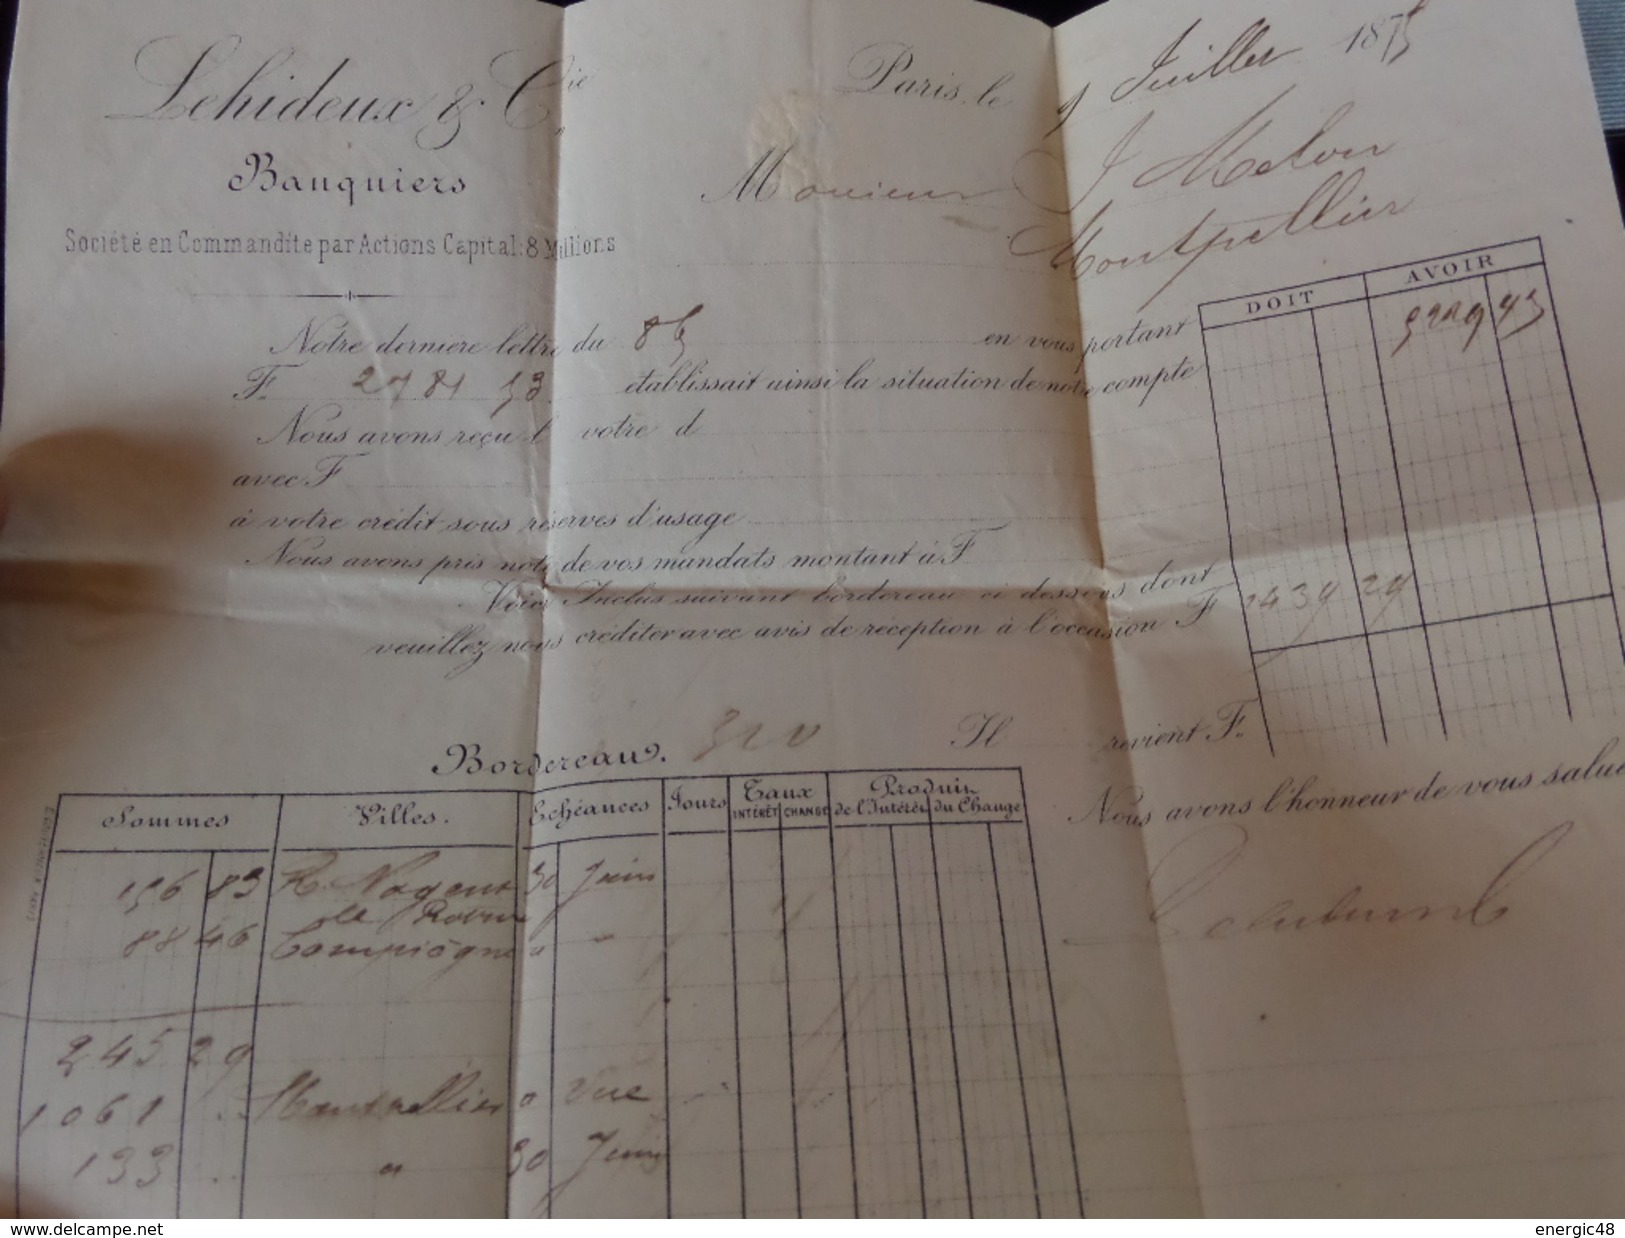 Lehideux & Cie
Banquiers
Société en Commandite par Actions Capital: 8 Millions
Paris, le 9 Juillet 1875
Monsieur J Melon
Montpellier
DOIT AVOIR
Notre dernière lettre du en vous portant
F. 2781 53 établissait ainsi la situation de notre compte
Nous avons reçu l votre d
avec F
à votre crédit sous réserves d'usage
Nous avons pris note de vos mandats montant à F
Voici Inclus suivant bordereau ci dessous dont
veuillez nous créditer avec avis de réception à l'occasion F 1439 29
Il revient F.
Bordereau. 320
Nous avons l'honneur de vous salue
Sommes Villes. Echéances Jours Taux Produit
INTÉRÊT CHANGE de l'Intérêt du Change
156 83 Nogent 30 Juin
le Rotrou
88 46 Compiègne " "
245 29
1061 .. Montpellier a vue
133 .. " 30 Juin
delcampe.net
energic48